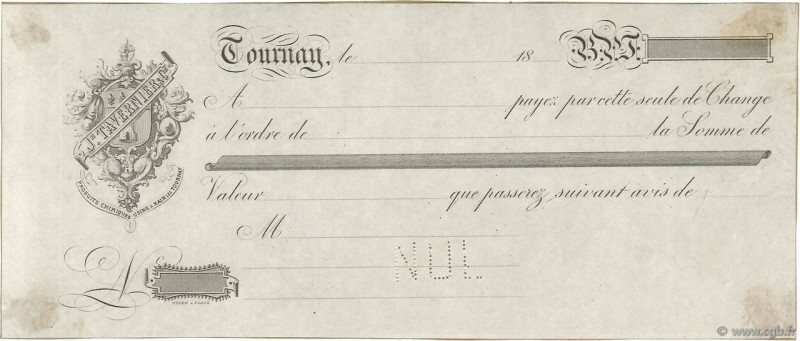 Tournay, le 18 B.P.F.
A payez par cette seule de Change
à l'ordre de la Somme de
Valeur que passerez, suivant avis de
M
NUL
No
Jh TAVERNIER & Cie
PRODUITS CHIMIQUES USINE A KAIN LEZ TOURNAY
© www.cgb.fr